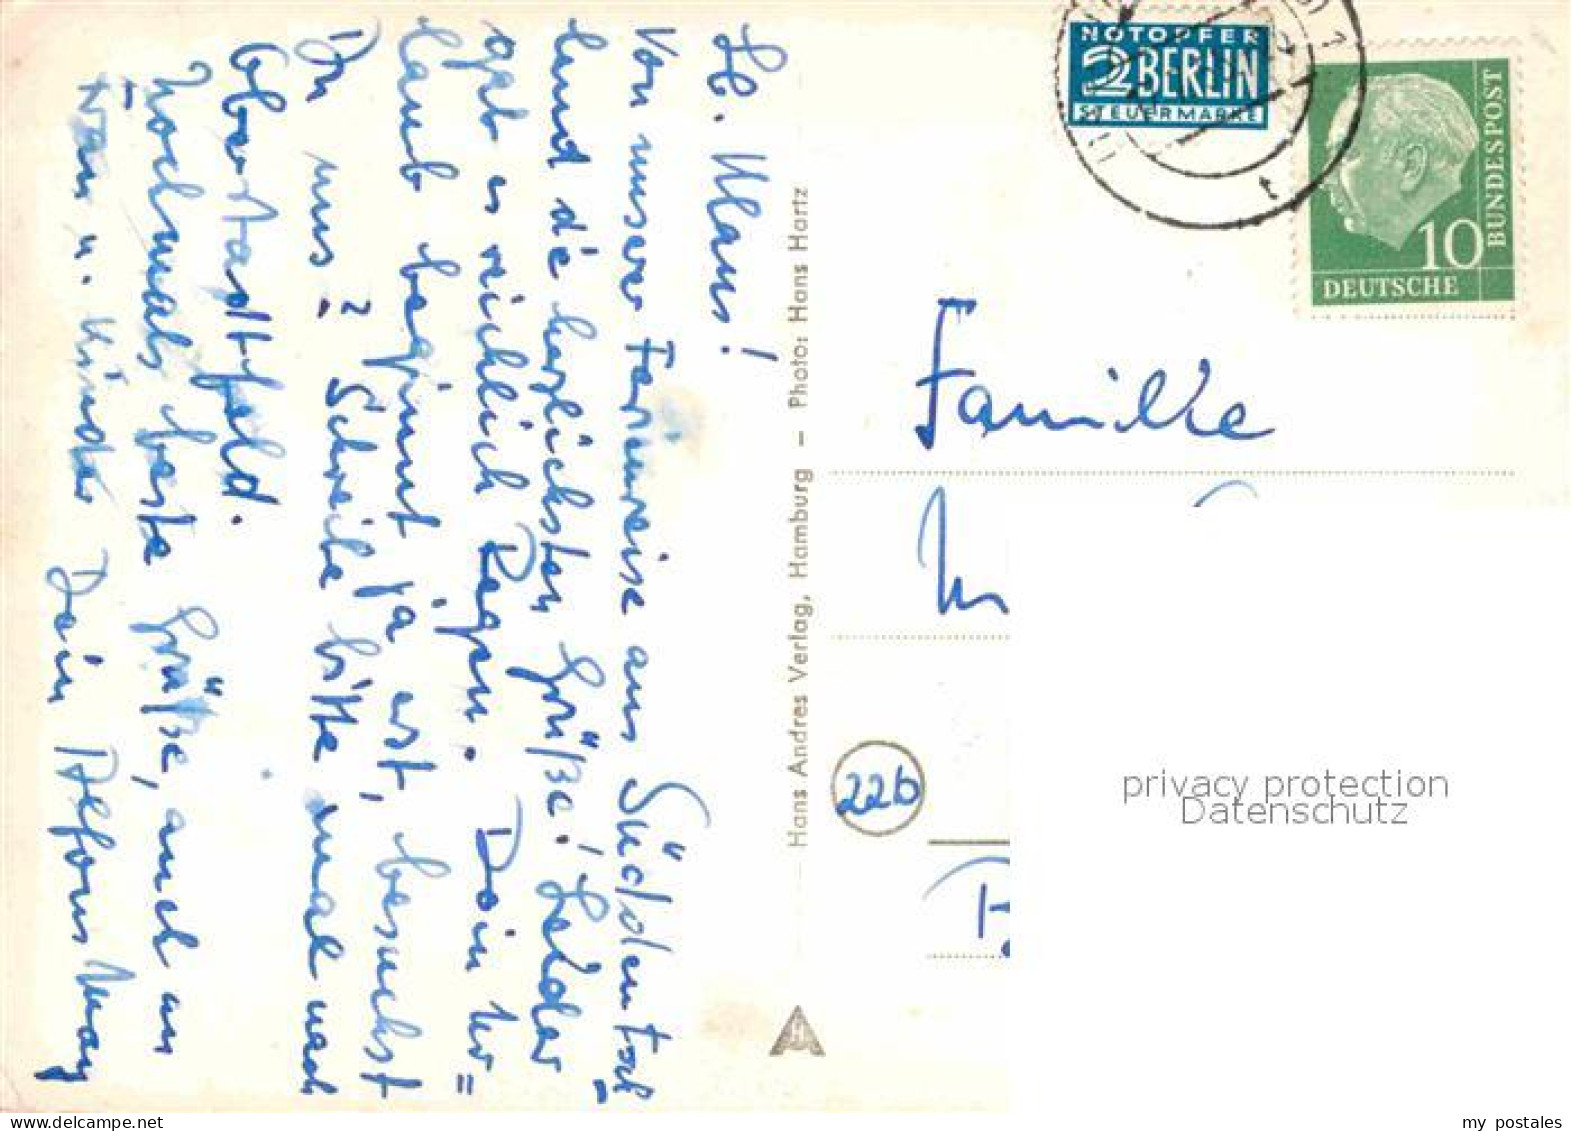 Lb. Klaus!
Von unserer Ferienreise aus Süddeutsch-
land die herzlichsten Grüße! Leider
gab es reichlich Regen. Dein Ur=
laub beginnt ja erst, besuchst
Du uns? Schreibe bitte mal nach
Oberstadtfeld.
Nochmals beste Grüße, auch an
Frau u. Kinder Dein Alfons May
Hans Andres Verlag, Hamburg – Photo: Hans Hartz
NOTOPFER
2 BERLIN
STEUERMARKE
10
BUNDESPOST
DEUTSCHE
Familie
22b
privacy protection
Datenschutz
my postales